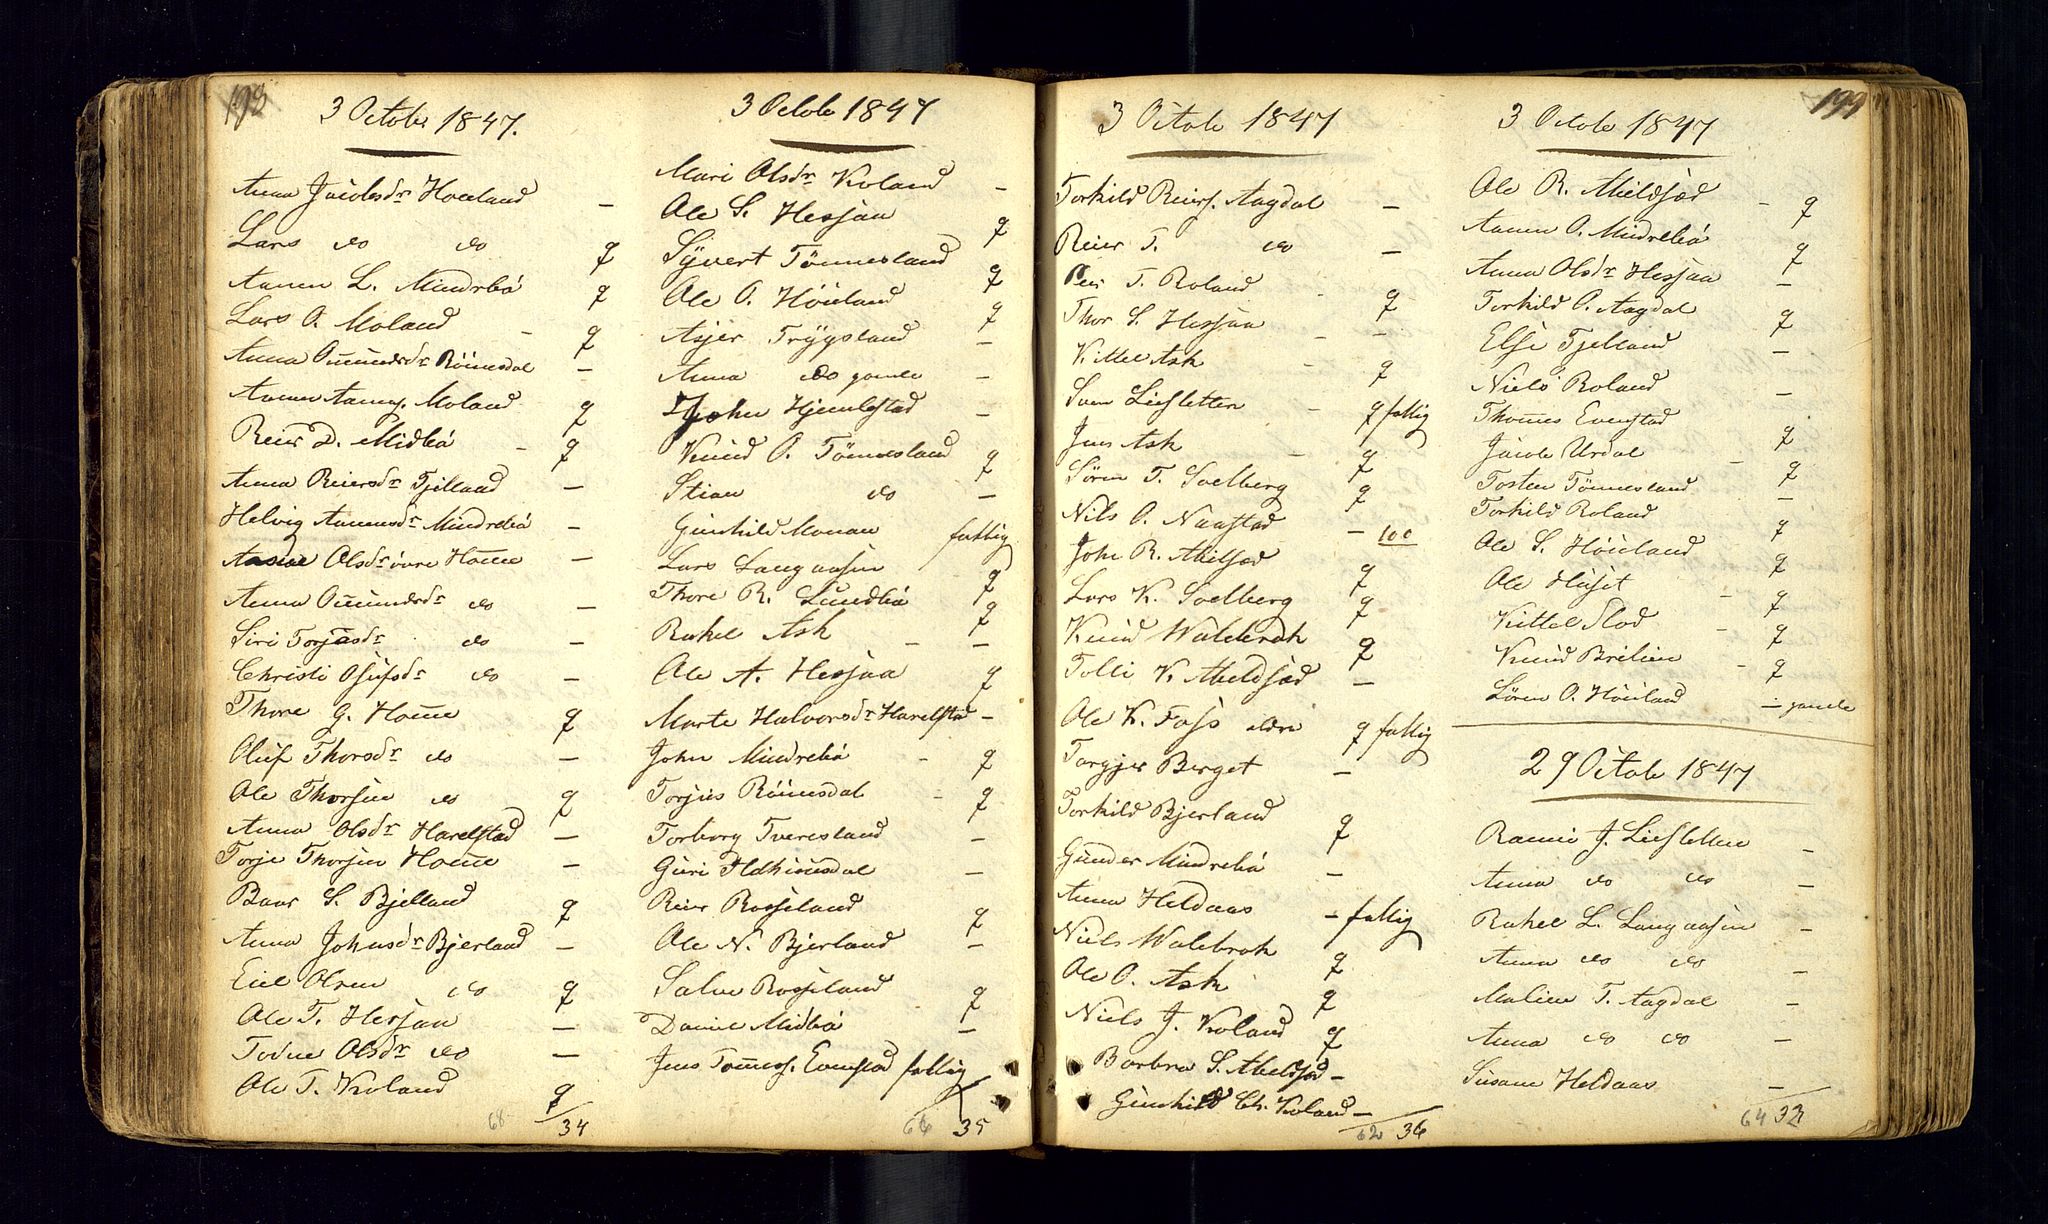 198
3 October 1847.
Anna Jacobsdr Hoeland -
Lars do do q
Aanen L. Mindrebö q
Lars O. Moland - q
Anna Omundsdr Röinesdal -
Aanen Aanens. Moland q
Reier D. Midbö - q
Anna Reiersdr Fjelland -
Helvig Aanensdr Mindrebö -
Olsdr övre Home -
Anna Omundsdr do -
Siri Torjusdr do -
Christi Olufsdr do -
Thore G. Home q
Oluf Thorsdr do -
Ole Thorsen do q
Anna Olsdr Harelstad -
Torje Thorsen Home -
Baar S. Bjelland q
Anna Johnsdr Bjerland -
Eiel Olsen do q
Ole T. Hesjaa -
Todne Olsdr do -
Ole T. Kroland q
68 34
3 Octobr 1847
Mari Olsdr Kroland -
Ole S. Hesjaa q
Syvert Tönnesland q
Ole O. Höieland q
Asjer Trygsland -
Anna do gamle -
John Hjemlestad -
Knud O. Tönnesland q
Stian do -
Gunhild Monan fattig
Lars Langaasen q
Thore R. Lundbö q
Rakel Ask - -
Ole A. Hesjaa q
Marte Halvorsdr Harelstad -
John Mindrebö - q
Torjus Röinesdal - q
Torborg Tveresland -
Guri Hakinsdal -
Reier Rosseland q
Ole N. Bjerland -
Salve Rosseland q
Daniel Midbö -
Jens Tönness. Evenstad fattig
66 35
3 Octobr 1847
Torkild Reiers. Aagdal -
Reier T. do -
Peer T. Roland - q
Thor S. Hesjaa - -
Kittel Ask - q
Sven Liesletten - q fattig
Jens Ask - q
Sören T. Solberg q
Nils O. Naustad - 100
John R. Abelsæd q
Lars K. Solberg q
Knud Walebrok q
Tolli K. Abeldsæd -
Ole K. Foss eldre q fattig
Torgjer Berget -
Torkild Bjerland q
Gunder Mindrebö -
Anna Heldaas - fattig
Niels Walebrok q
Ole O. Ask q
Niels J. Kroland q
Barbra S. Abeldsæd -
Gunhild Chr. Kroland -
62 36
199
3 Octobr 1847
Ole R. Abeldsæd - q
Aanen O. Mindrebö q
Anna Olsdr Hesjaa -
Torkild O. Aagdal q
Else Fjelland -
Niels Roland -
Thomes Evenstad q
Jacob Urdal - q
Tosten Tönnesland -
Torkild Roland q
Ole S. Höieland q
Ole Huset - q
Kittel Flod - q
Knud Brelien - q
Sören O. Höieland - gamle
29 Octobr 1847
Rannei J. Liesletten -
Anna do do -
Rakel L. Langaasen -
Anna do do -
Malene T. Aagdal -
Anna do do -
Susane Heldaas -
64 32